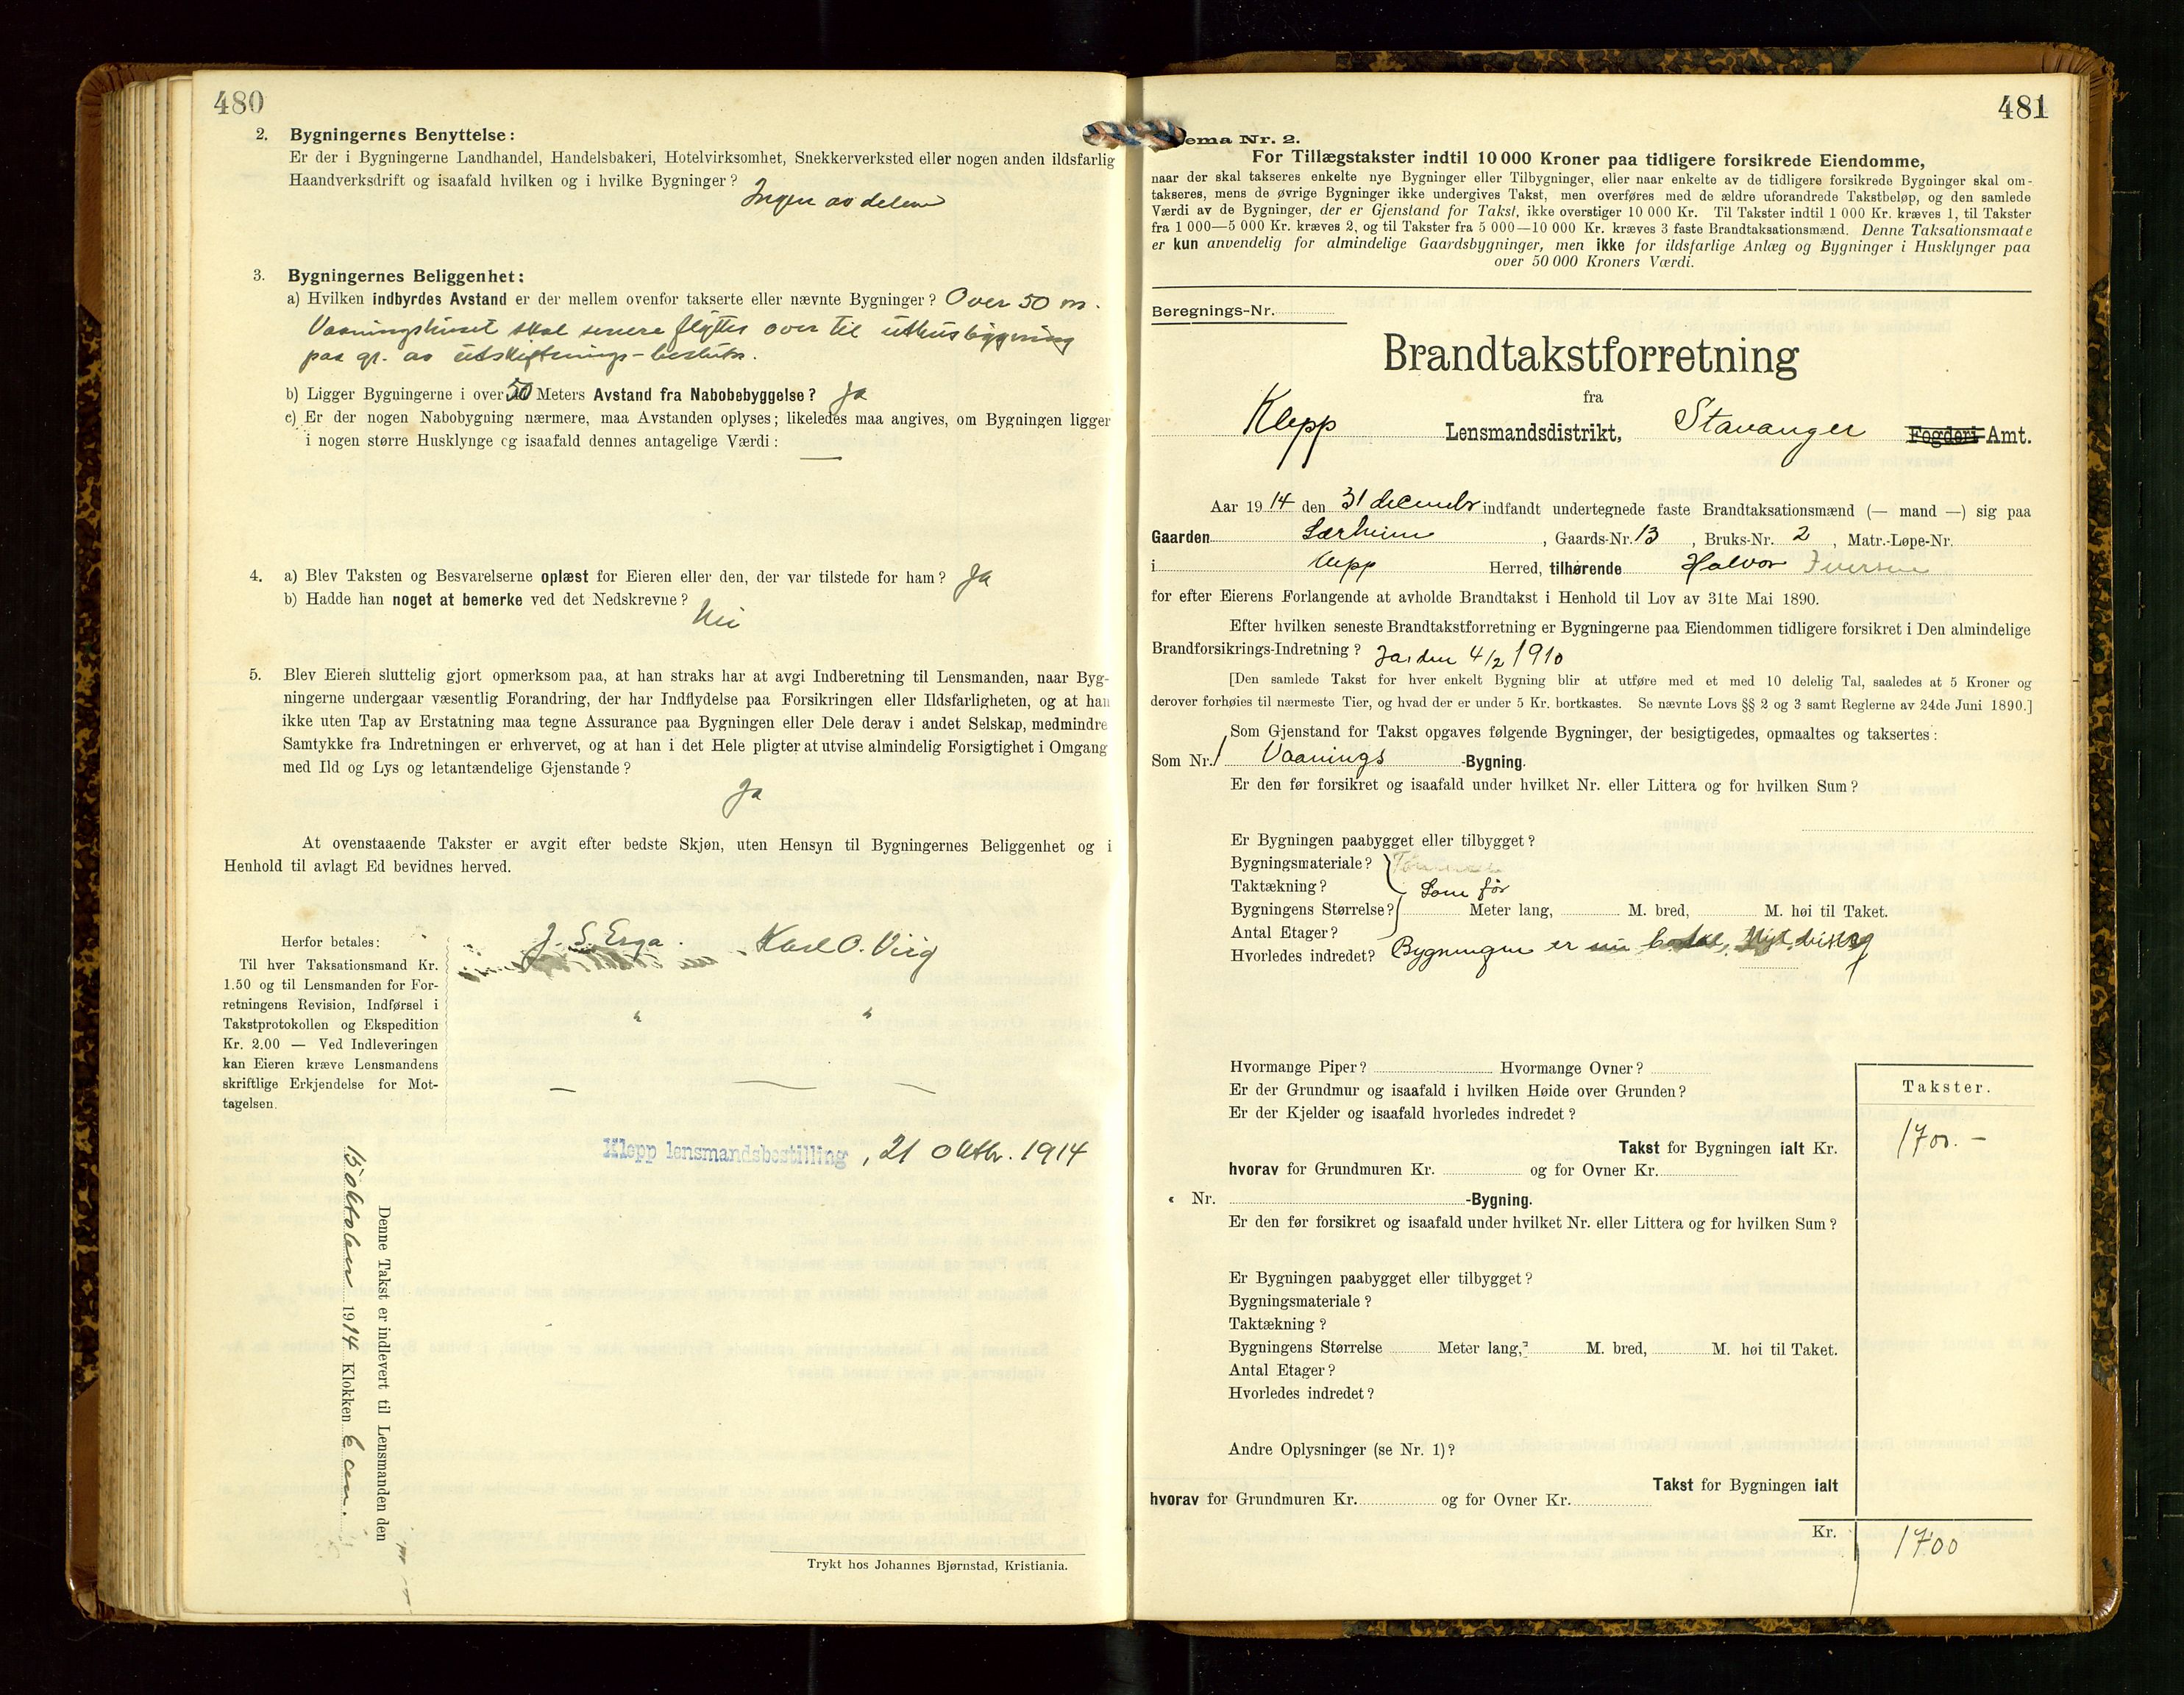 480
2. Bygningernes Benyttelse:
Er der i Bygningerne Landhandel, Handelsbakeri, Hotelvirksomhet, Snekkerverksted eller nogen anden ildsfarlig
Haandverksdrift og isaafald hvilken og i hvilke Bygninger? Ingen av delene
3. Bygningernes Beliggenhet:
a) Hvilken indbyrdes Avstand er der mellem ovenfor takserte eller nævnte Bygninger? Over 50 m.
Vaaningshuset skal senere flyttes over til uthusbygning
paa gr. av utskiftnings-beslutn.
b) Ligger Bygningerne i over 50 Meters Avstand fra Nabobebyggelse? Ja
c) Er der nogen Nabobygning nærmere, maa Avstanden oplyses; likeledes maa angives, om Bygningen ligger
i nogen større Husklynge og isaafald dennes antagelige Værdi: —
4. a) Blev Taksten og Besvarelserne oplæst for Eieren eller den, der var tilstede for ham? Ja
b) Hadde han noget at bemerke ved det Nedskrevne? Nei
5. Blev Eieren sluttelig gjort opmerksom paa, at han straks har at avgi Indberetning til Lensmanden, naar Byg-
ningerne undergaar væsentlig Forandring, der har Indflydelse paa Forsikringen eller Ildsfarligheten, og at han
ikke uten Tap av Erstatning maa tegne Assurance paa Bygningen eller Dele derav i andet Selskap, medmindre
Samtykke fra Indretningen er erhvervet, og at han i det Hele pligter at utvise almindelig Forsigtighet i Omgang
med Ild og Lys og letantændelige Gjenstande?
Ja
At ovenstaaende Takster er avgit efter bedste Skjøn, uten Hensyn til Bygningernes Beliggenhet og i
Henhold til avlagt Ed bevidnes herved.
J. S. Erga. Karl O. Virg
Herfor betales:
Til hver Taksationsmand Kr.
1.50 og til Lensmanden for For-
retningens Revision, Indførsel i
Takstprotokollen og Ekspedition
Kr. 2.00 — Ved Indleveringen
kan Eieren kræve Lensmandens
skriftlige Erkjendelse for Mot-
tagelsen.
Klepp lensmandsbestilling, 21 oktbr. 1914
Denne Takst er indlevert til Lensmanden den
15 oktober 1914 Klokken 6 em.
Trykt hos Johannes Bjørnstad, Kristiania.
481
ema Nr. 2.
For Tillægstakster indtil 10 000 Kroner paa tidligere forsikrede Eiendomme,
naar der skal takseres enkelte nye Bygninger eller Tilbygninger, eller naar enkelte av de tidligere forsikrede Bygninger skal om-
takseres, mens de øvrige Bygninger ikke undergives Takst, men overføres med de ældre uforandrede Takstbeløp, og den samlede
Værdi av de Bygninger, der er Gjenstand for Takst, ikke overstiger 10 000 Kr. Til Takster indtil 1 000 Kr. kræves 1, til Takster
fra 1 000—5 000 Kr. kræves 2, og til Takster fra 5 000—10 000 Kr. kræves 3 faste Brandtaksationsmænd. Denne Taksationsmaate
er kun anvendelig for almindelige Gaardsbygninger, men ikke for ildsfarlige Anlæg og Bygninger i Husklynger paa
over 50 000 Kroners Værdi.
Beregnings-Nr.
Brandtakstforretning
fra
Klepp Lensmandsdistrikt, Stavanger Fogderi Amt.
Aar 1914 den 31 decembr indfandt undertegnede faste Brandtaksationsmænd (— mand —) sig paa
Gaarden Særheim, Gaards-Nr. 13, Bruks-Nr. 2, Matr.-Løpe-Nr.
i Klepp Herred, tilhørende Halvor Iversen
for efter Eierens Forlangende at avholde Brandtakst i Henhold til Lov av 31te Mai 1890.
Efter hvilken seneste Brandtakstforretning er Bygningerne paa Eiendommen tidligere forsikret i Den almindelige
Brandforsikrings-Indretning? Ja, den 4/2 1910
[Den samlede Takst for hver enkelt Bygning blir at utføre med et med 10 delelig Tal, saaledes at 5 Kroner og
derover forhøies til nærmeste Tier, og hvad der er under 5 Kr. bortkastes. Se nævnte Lovs §§ 2 og 3 samt Reglerne av 24de Juni 1890.]
Som Gjenstand for Takst opgaves følgende Bygninger, der besigtigedes, opmaaltes og taksertes:
Som Nr. 1 Vaanings-Bygning.
Er den før forsikret og isaafald under hvilket Nr. eller Littera og for hvilken Sum?
Er Bygningen paabygget eller tilbygget?
Bygningsmateriale?
Taktækning? Som før
Bygningens Størrelse? Meter lang, M. bred, M. høi til Taket.
Antal Etager?
Hvorledes indredet? Bygningen er
Hvormange Piper? Hvormange Ovner?
Er der Grundmur og isaafald i hvilken Høide over Grunden?
Er der Kjelder og isaafald hvorledes indredet?
Takster.
Takst for Bygningen ialt Kr. 1700.-
hvorav for Grundmuren Kr. og for Ovner Kr.
« Nr. -Bygning.
Er den før forsikret og isaafald under hvilket Nr. eller Littera og for hvilken Sum?
Er Bygningen paabygget eller tilbygget?
Bygningsmateriale?
Taktækning?
Bygningens Størrelse Meter lang, M. bred, M. høi til Taket.
Antal Etager?
Hvorledes indredet?
Andre Oplysninger (se Nr. 1)?
Takst for Bygningen ialt
hvorav for Grundmuren Kr. og for Ovner Kr.
Kr. 1700